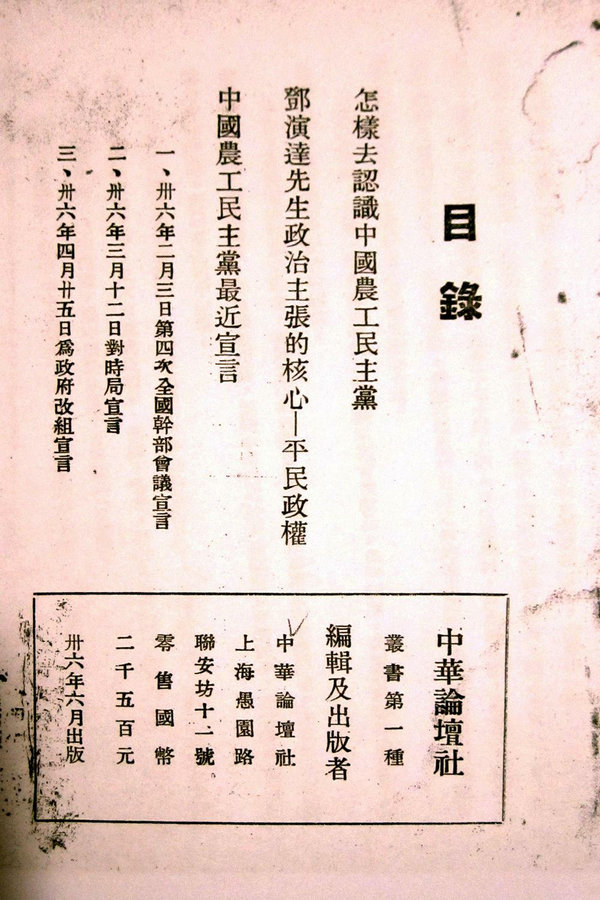 目錄
怎樣去認識中國農工民主黨
鄧演達先生政治主張的核心—平民政權
中國農工民主黨最近宣言
一、卅六年二月三日第四次全國幹部會議宣言
二、卅六年三月十二日對時局宣言
三、卅六年四月廿五日為政府改組宣言
中華論壇社
叢書第一種
編輯及出版者
中華論壇社
上海愚園路
聯安坊十一號
零售國幣
二千五百元
卅六年六月出版